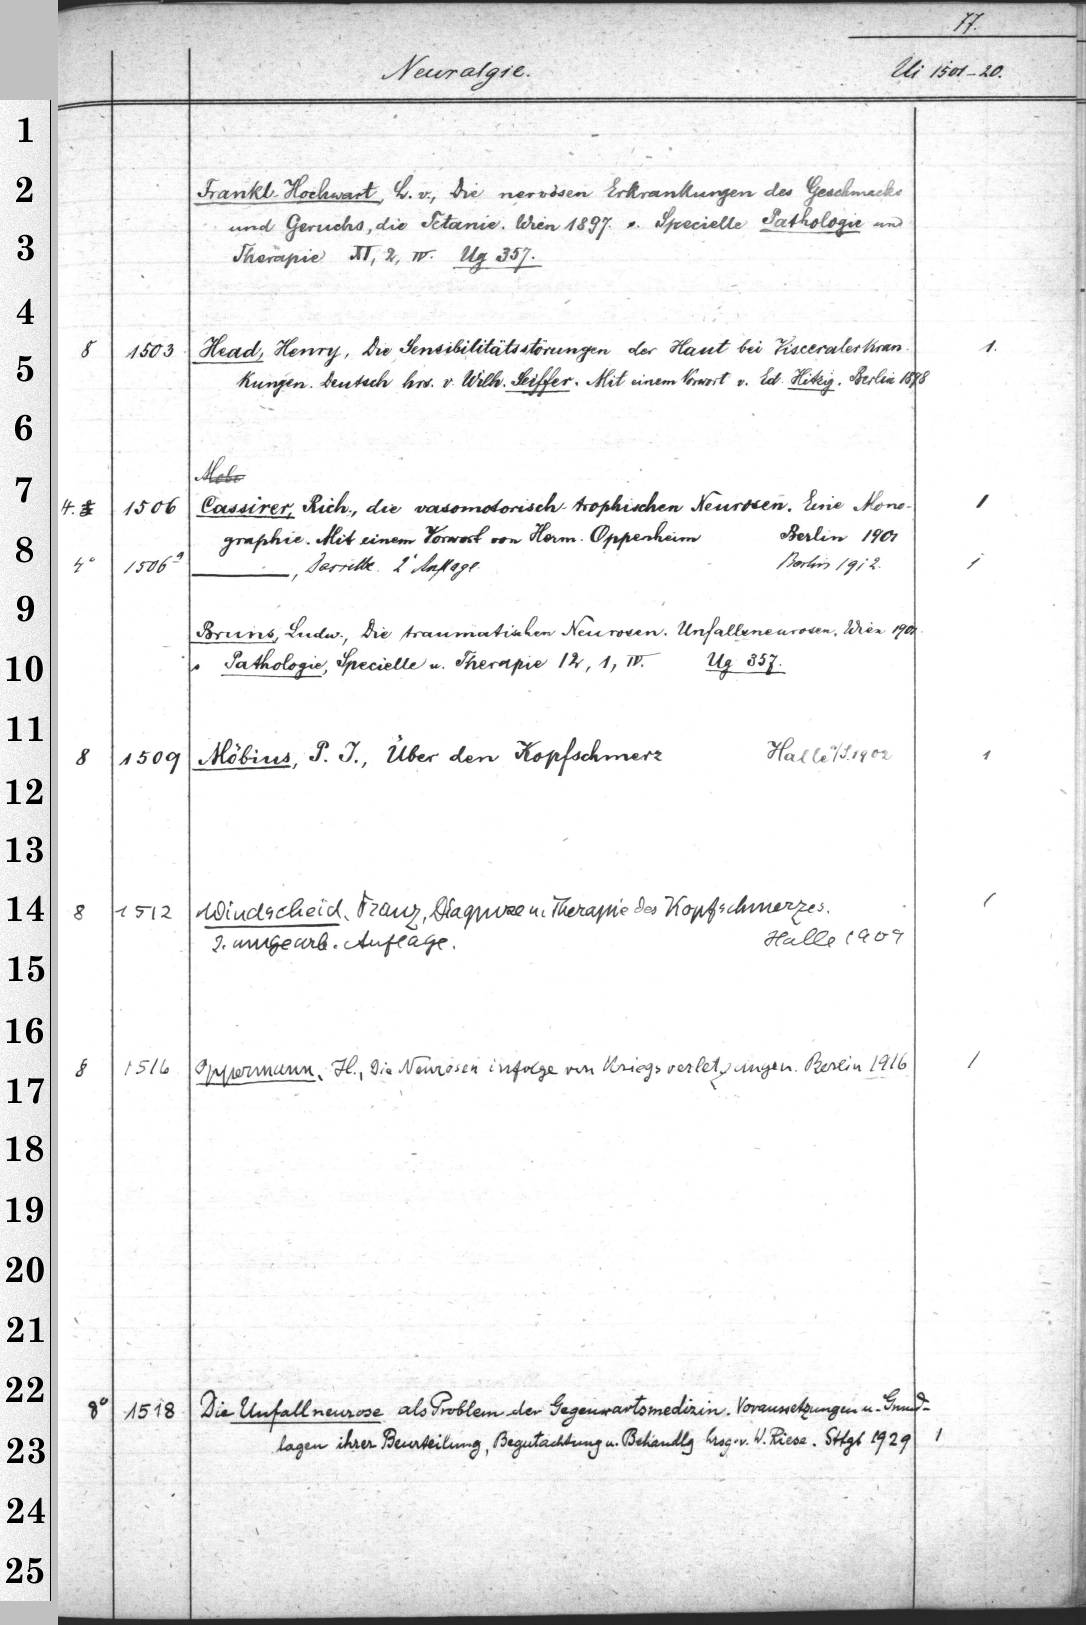 77.
Neuralgie. Ui 1501-20.
1
2
Frankl-Hochwart, L. v., Die nervösen Erkrankungen des Geschmacks
und Geruchs, die Tetanie. Wien 1897. s. Specielle Pathologie und
3
Therapie XI, 2, IV. Ug 357.
4
8 1503 Head, Henry, Die Sensibilitätsstörungen der Haut bei Visceralerkran- 1.
5
kungen. Deutsch hrs. v. Wilh. Seiffer. Mit einem Vorwort v. Ed. Hitzig. Berlin 1898
6
Mobe
7
4. 8 1506 Cassirer, Rich., die vasomotorisch-trophischen Neurosen. Eine Mono- 1
graphie. Mit einem Vorwort von Herm. Oppenheim Berlin 1901
8
4° 1506a ———, Dasselbe 2' Auflage. Berlin 1912. 1
9
Bruns, Ludw., Die traumatischen Neurosen. Unfallsneurosen. Wien 1901
10
s. Pathologie, Specielle u. Therapie 12, 1, IV. Ug 357.
11
8 1509 Möbius, P. J., Über den Kopfschmerz Halle a/S. 1902 1
12
13
14
8 1512 Windscheid, Franz, Diagnose u. Therapie des Kopfschmerzes. 1
2. umgearb. Auflage. Halle 1909
15
16
8 1516 Oppermann, H., Die Neurosen infolge von Kriegsverletzungen. Berlin 1916 1
17
18
19
20
21
22
8° 1518 Die Unfallneurose als Problem der Gegenwartsmedizin. Voraussetzungen u. Grund-
23
lagen ihrer Beurteilung, Begutachtung u. Behandlg hrsg. v. W. Riese. Sttgt 1929 1
24
25